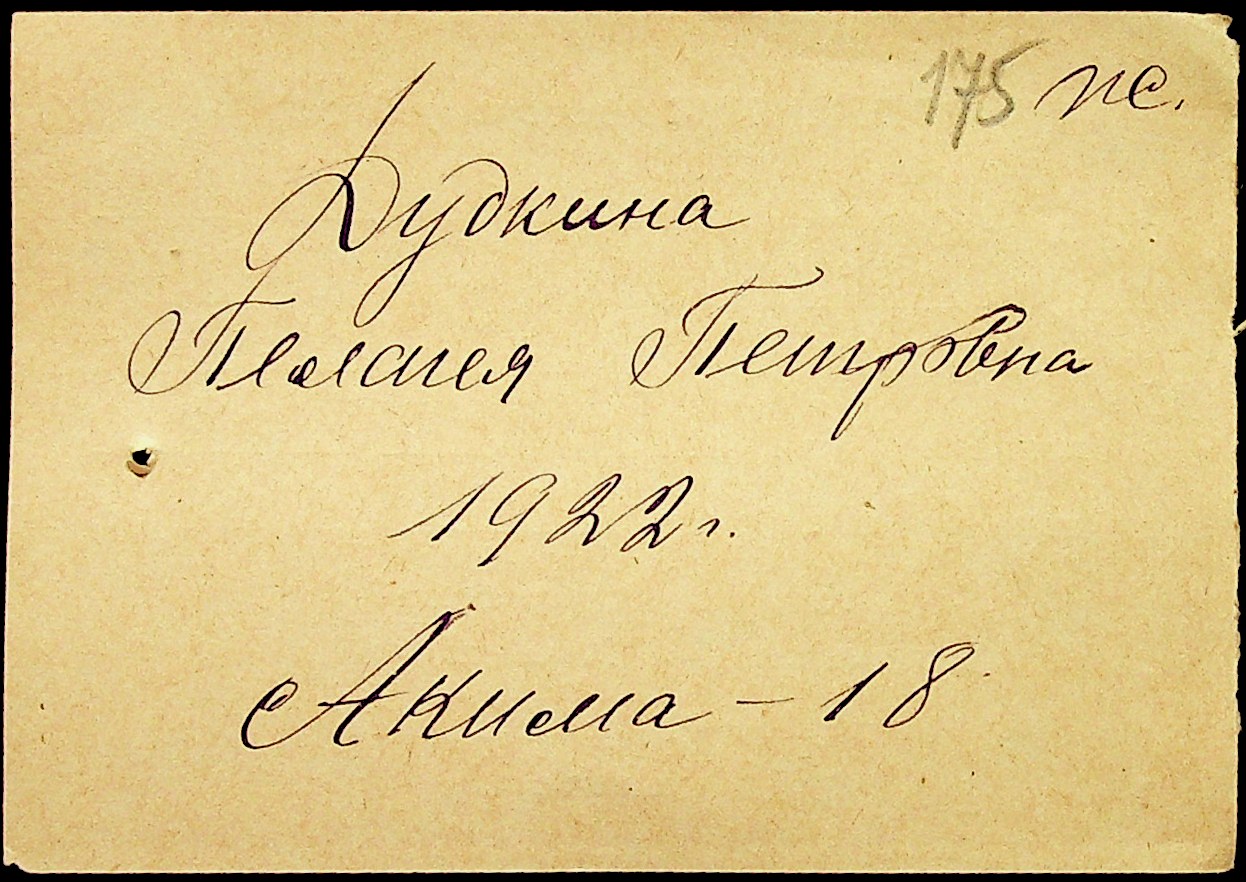 175 пс.
Дудкина
Пелагея Петровна
1922 г.
Акима - 18